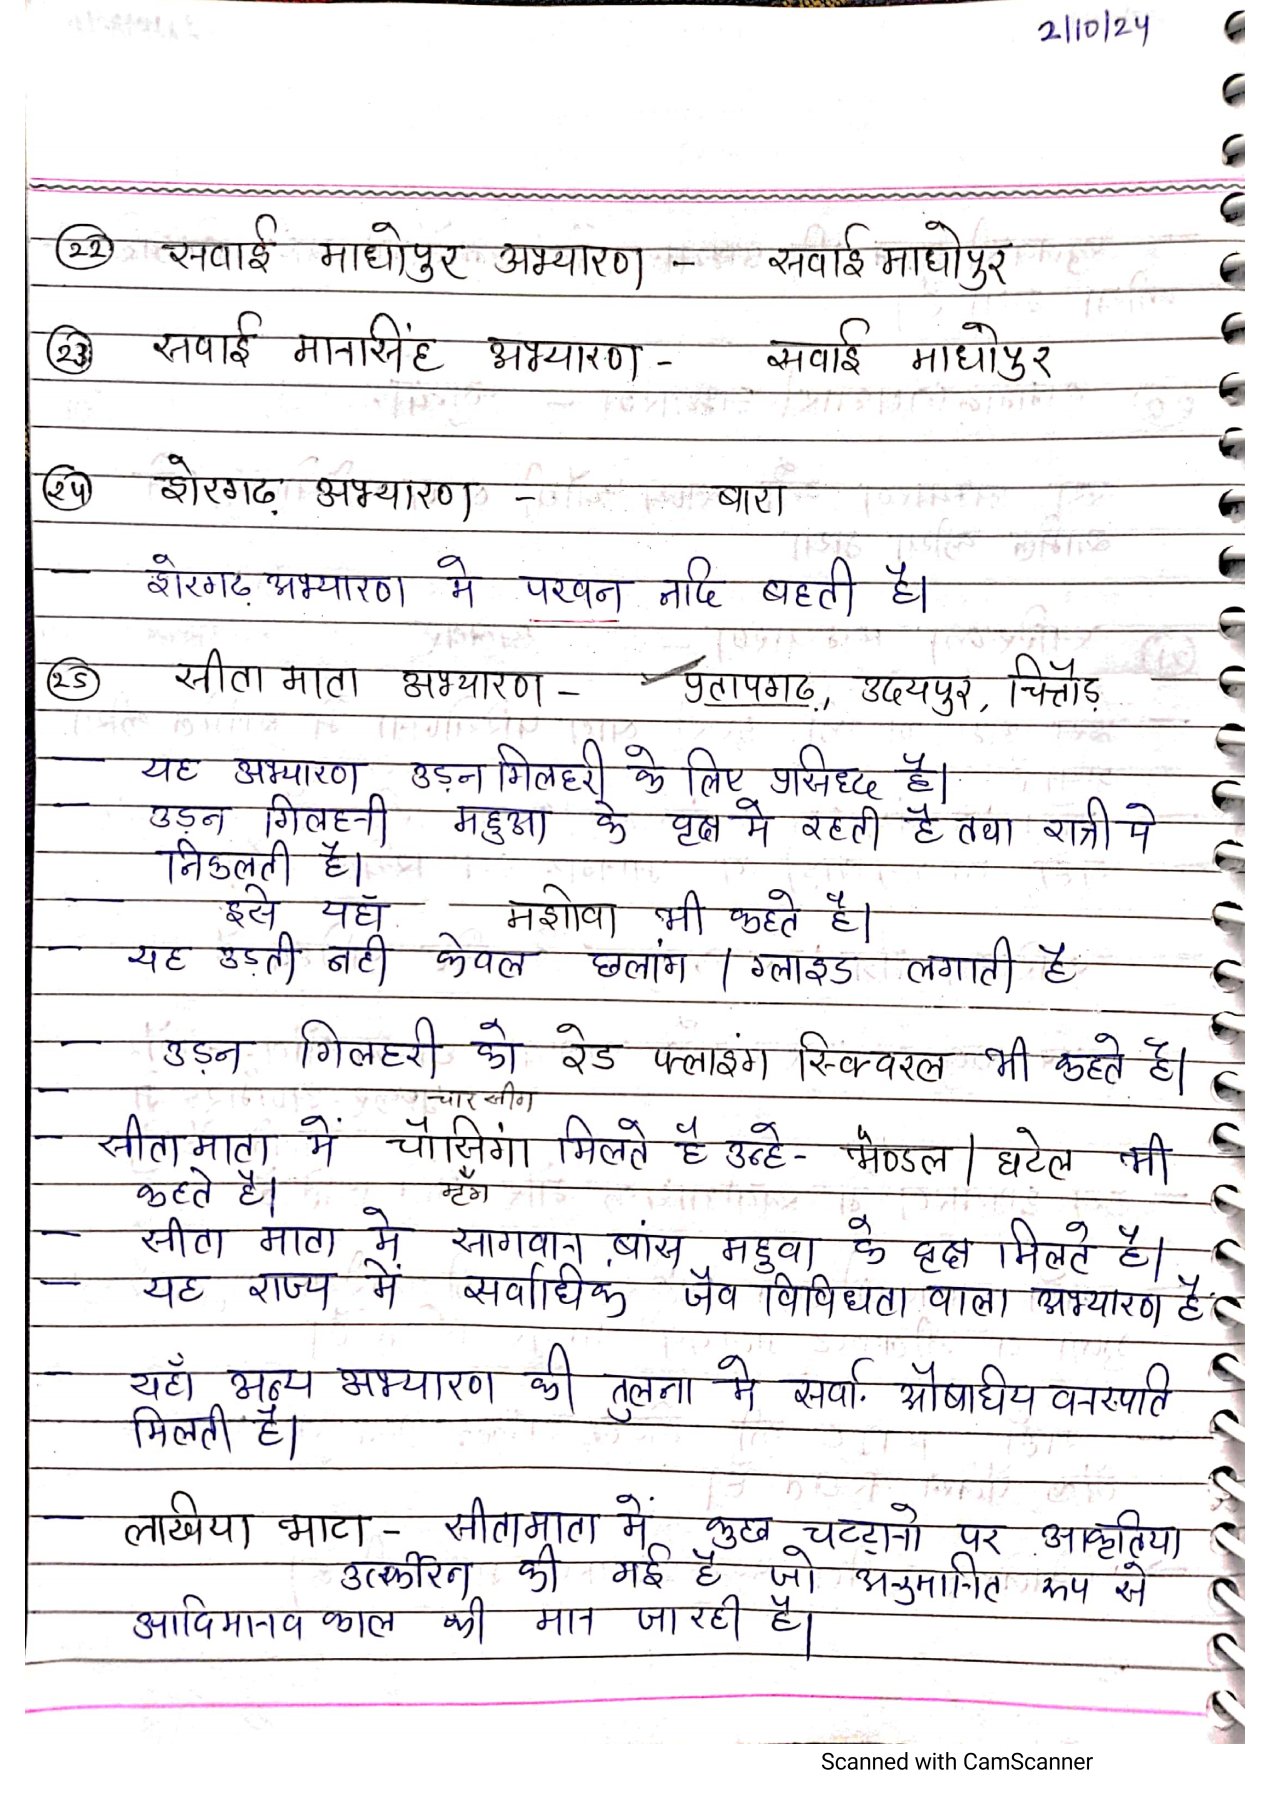 2/10/24
(22) सवाई माधोपुर अभ्यारण - सवाई माधोपुर
(23) सवाई मानसिंह अभ्यारण - सवाई माधोपुर
(24) शेरगढ़ अभ्यारण - बारा
- शेरगढ़ अभ्यारण मे परवन नदि बहती है।
(25) सीता माता अभ्यारण - प्रतापगढ़, उदयपुर, चित्तौड़
- यह अभ्यारण उड़न गिलहरी के लिए प्रसिध्द है।
- उड़न गिलहरी महुआ के वृक्ष मे रहती है तथा रात्री मे
निकलती है।
इसे यहाँ मशोवा भी कहते है।
- यह उड़ती नही केवल छलांग / ग्लाइड लगाती है
- उड़न गिलहरी को रेड फ्लाइंग स्क्विरल भी कहते है।
- चार सींग
- सीता माता में चौसिंगा मिलते है उन्हे - भेण्डल / घटेल भी
कहते है।
- सीता माता मे सागवान, बांस, महुवा के वृक्ष मिलते है।
- यह राज्य में सर्वाधिक जैव विविधता वाला अभ्यारण है
- यहाँ अन्य अभ्यारण की तुलना मे सर्वा. औषाधीय वनस्पति
मिलती है।
- लाखिया भाटा - सीतामाता में कुछ चटट्रानो पर आकृतिया
उत्कीरिन की गई है जो अनुमानित रूप से
आदिमानव काल की मान जा रही है।
Scanned with CamScanner